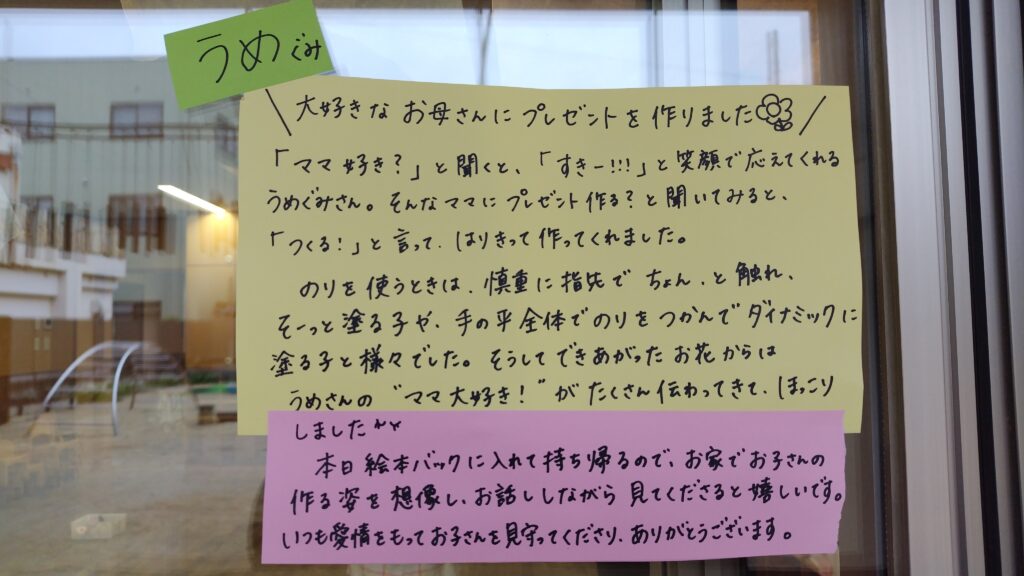 うめぐみ
大好きな お母さんに プレゼントを 作りました
「ママ 好き?」と聞くと、「すきー!!!」と笑顔で応えてくれる
うめぐみさん。そんなママに プレゼント 作る?と聞いてみると、
「つくる!」と言って、はりきって作ってくれました。
のりを使うときは、慎重に指先で ちょん、と触れ、
そーっと塗る子や、手の平全体でのりをつかんでダイナミックに
塗る子と様々でした。そうしてできあがったお花からは
うめさんの "ママ大好き!"が たくさん伝わってきて、ほっこり
しました
本日 絵本バックに入れて持ち帰るので、お家でお子さんの
作る姿を想像し、お話ししながら 見てくださると嬉しいです。
いつも愛情をもってお子さんを見守ってくださり、ありがとうございます。